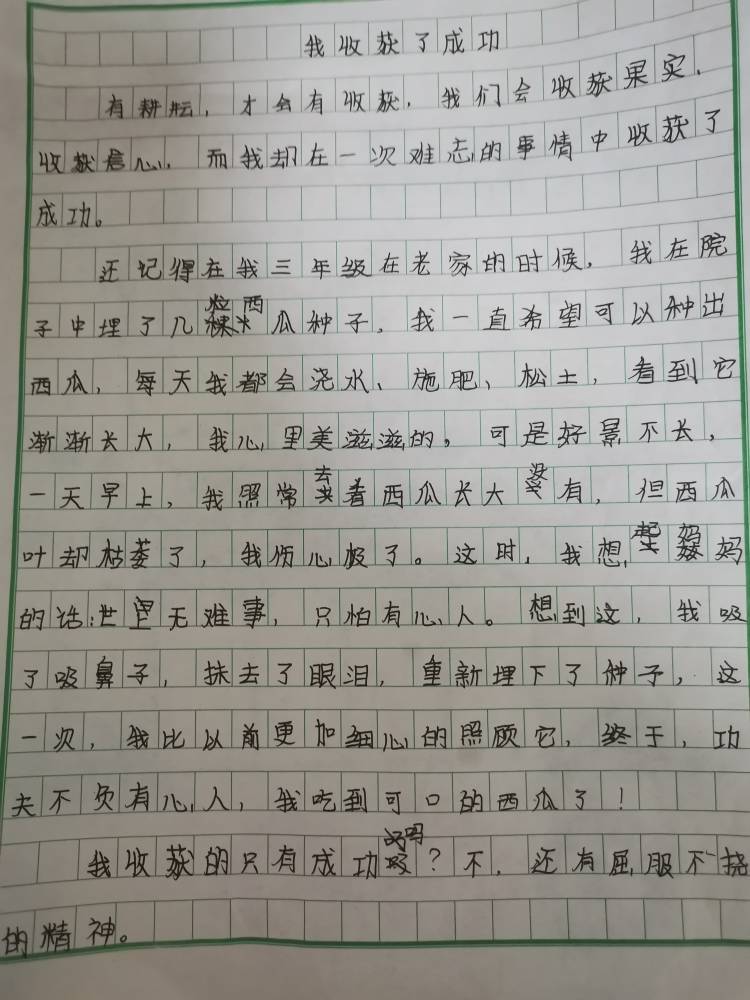 我收获了成功
有耕耘，才会有收获，我们会收获果实，
收获信心，而我却在一次难忘的事情中收获了
成功。
还记得在我三年级在老家的时候，我在院
子中埋了几粒西瓜种子，我一直希望可以种出
西瓜，每天我都会浇水、施肥、松土，看到它
渐渐长大，我心里美滋滋的。可是好景不长，
一天早上，我照常去看西瓜长大没有，但西瓜
叶却枯萎了，我伤心极了。这时，我想起妈妈
的话：世上无难事，只怕有心人。想到这，我吸
了吸鼻子，抹去了眼泪，重新埋下了种子，这
一次，我比以前更加细心的照顾它，终于，功
夫不负有心人，我吃到可口的西瓜了！
我收获的只有成功吗？不，还有屈服不挠
的精神。